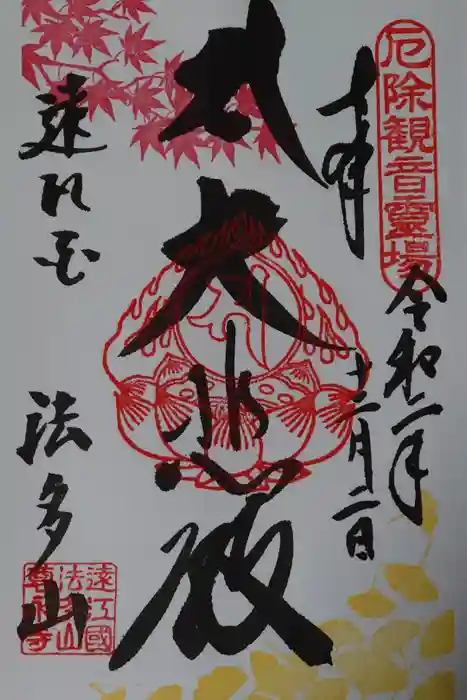 厄除観音靈場
奉拝
令和二年
十二月二日
大悲殿
遠江国
法多山
遠江國
法多山
尊永寺